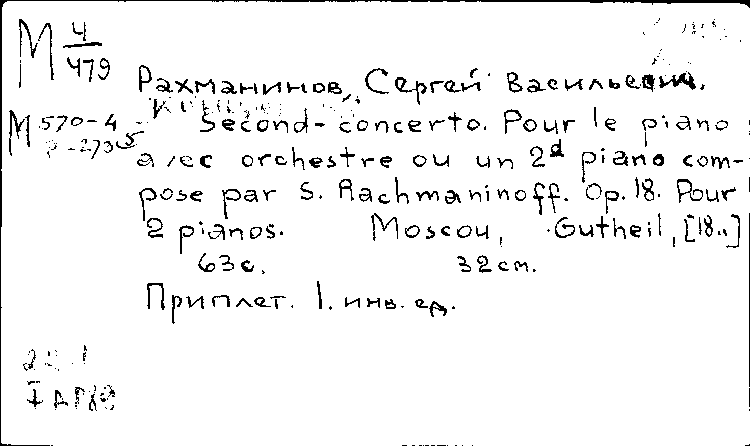 М 4/479
Рахманинов, Сергей Васильевич.
М 570-4
Second-concerto. Pour le piano
avec orchestre ou un 2d piano com-
pose par S. Rachmaninoff. Op. 18. Pour
2 pianos. Moscou, Gutheil, [18..]
63 с. 32 см.
Приплет. 1. инв. ед.